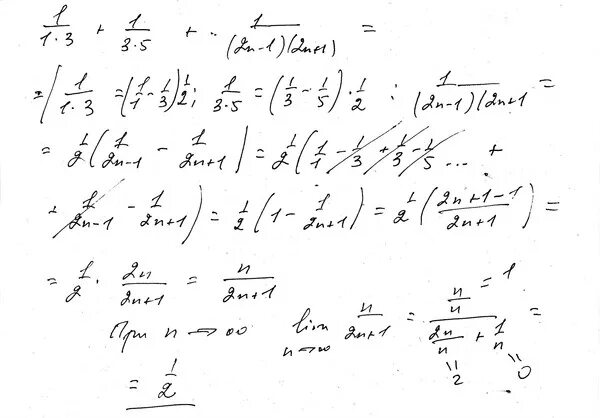 1/(1·3) + 1/(3·5) + .. 1/((2n-1)(2n+1)) =
= (1/(1·3) = (1/1 - 1/3) 1/2; 1/(3·5) = (1/3 - 1/5)·1/2 ; 1/((2n-1)(2n+1 =
= 1/2 (1/(2n-1) - 1/(2n+1)) = 1/2 (1/1 - 1/3 + 1/3 - 1/5 ... +
+ 1/(2n-1) - 1/(2n+1)) = 1/2 (1 - 1/(2n+1)) = 1/2 ((2n+1-1)/(2n+1)) =
= 1/2 · 2n/(2n+1) = n/(2n+1)
При n → ∞ lim n→∞ n/(2n+1) = (n/n)/(2n/n + 1/n) = 1 = 2 0
= 1/2